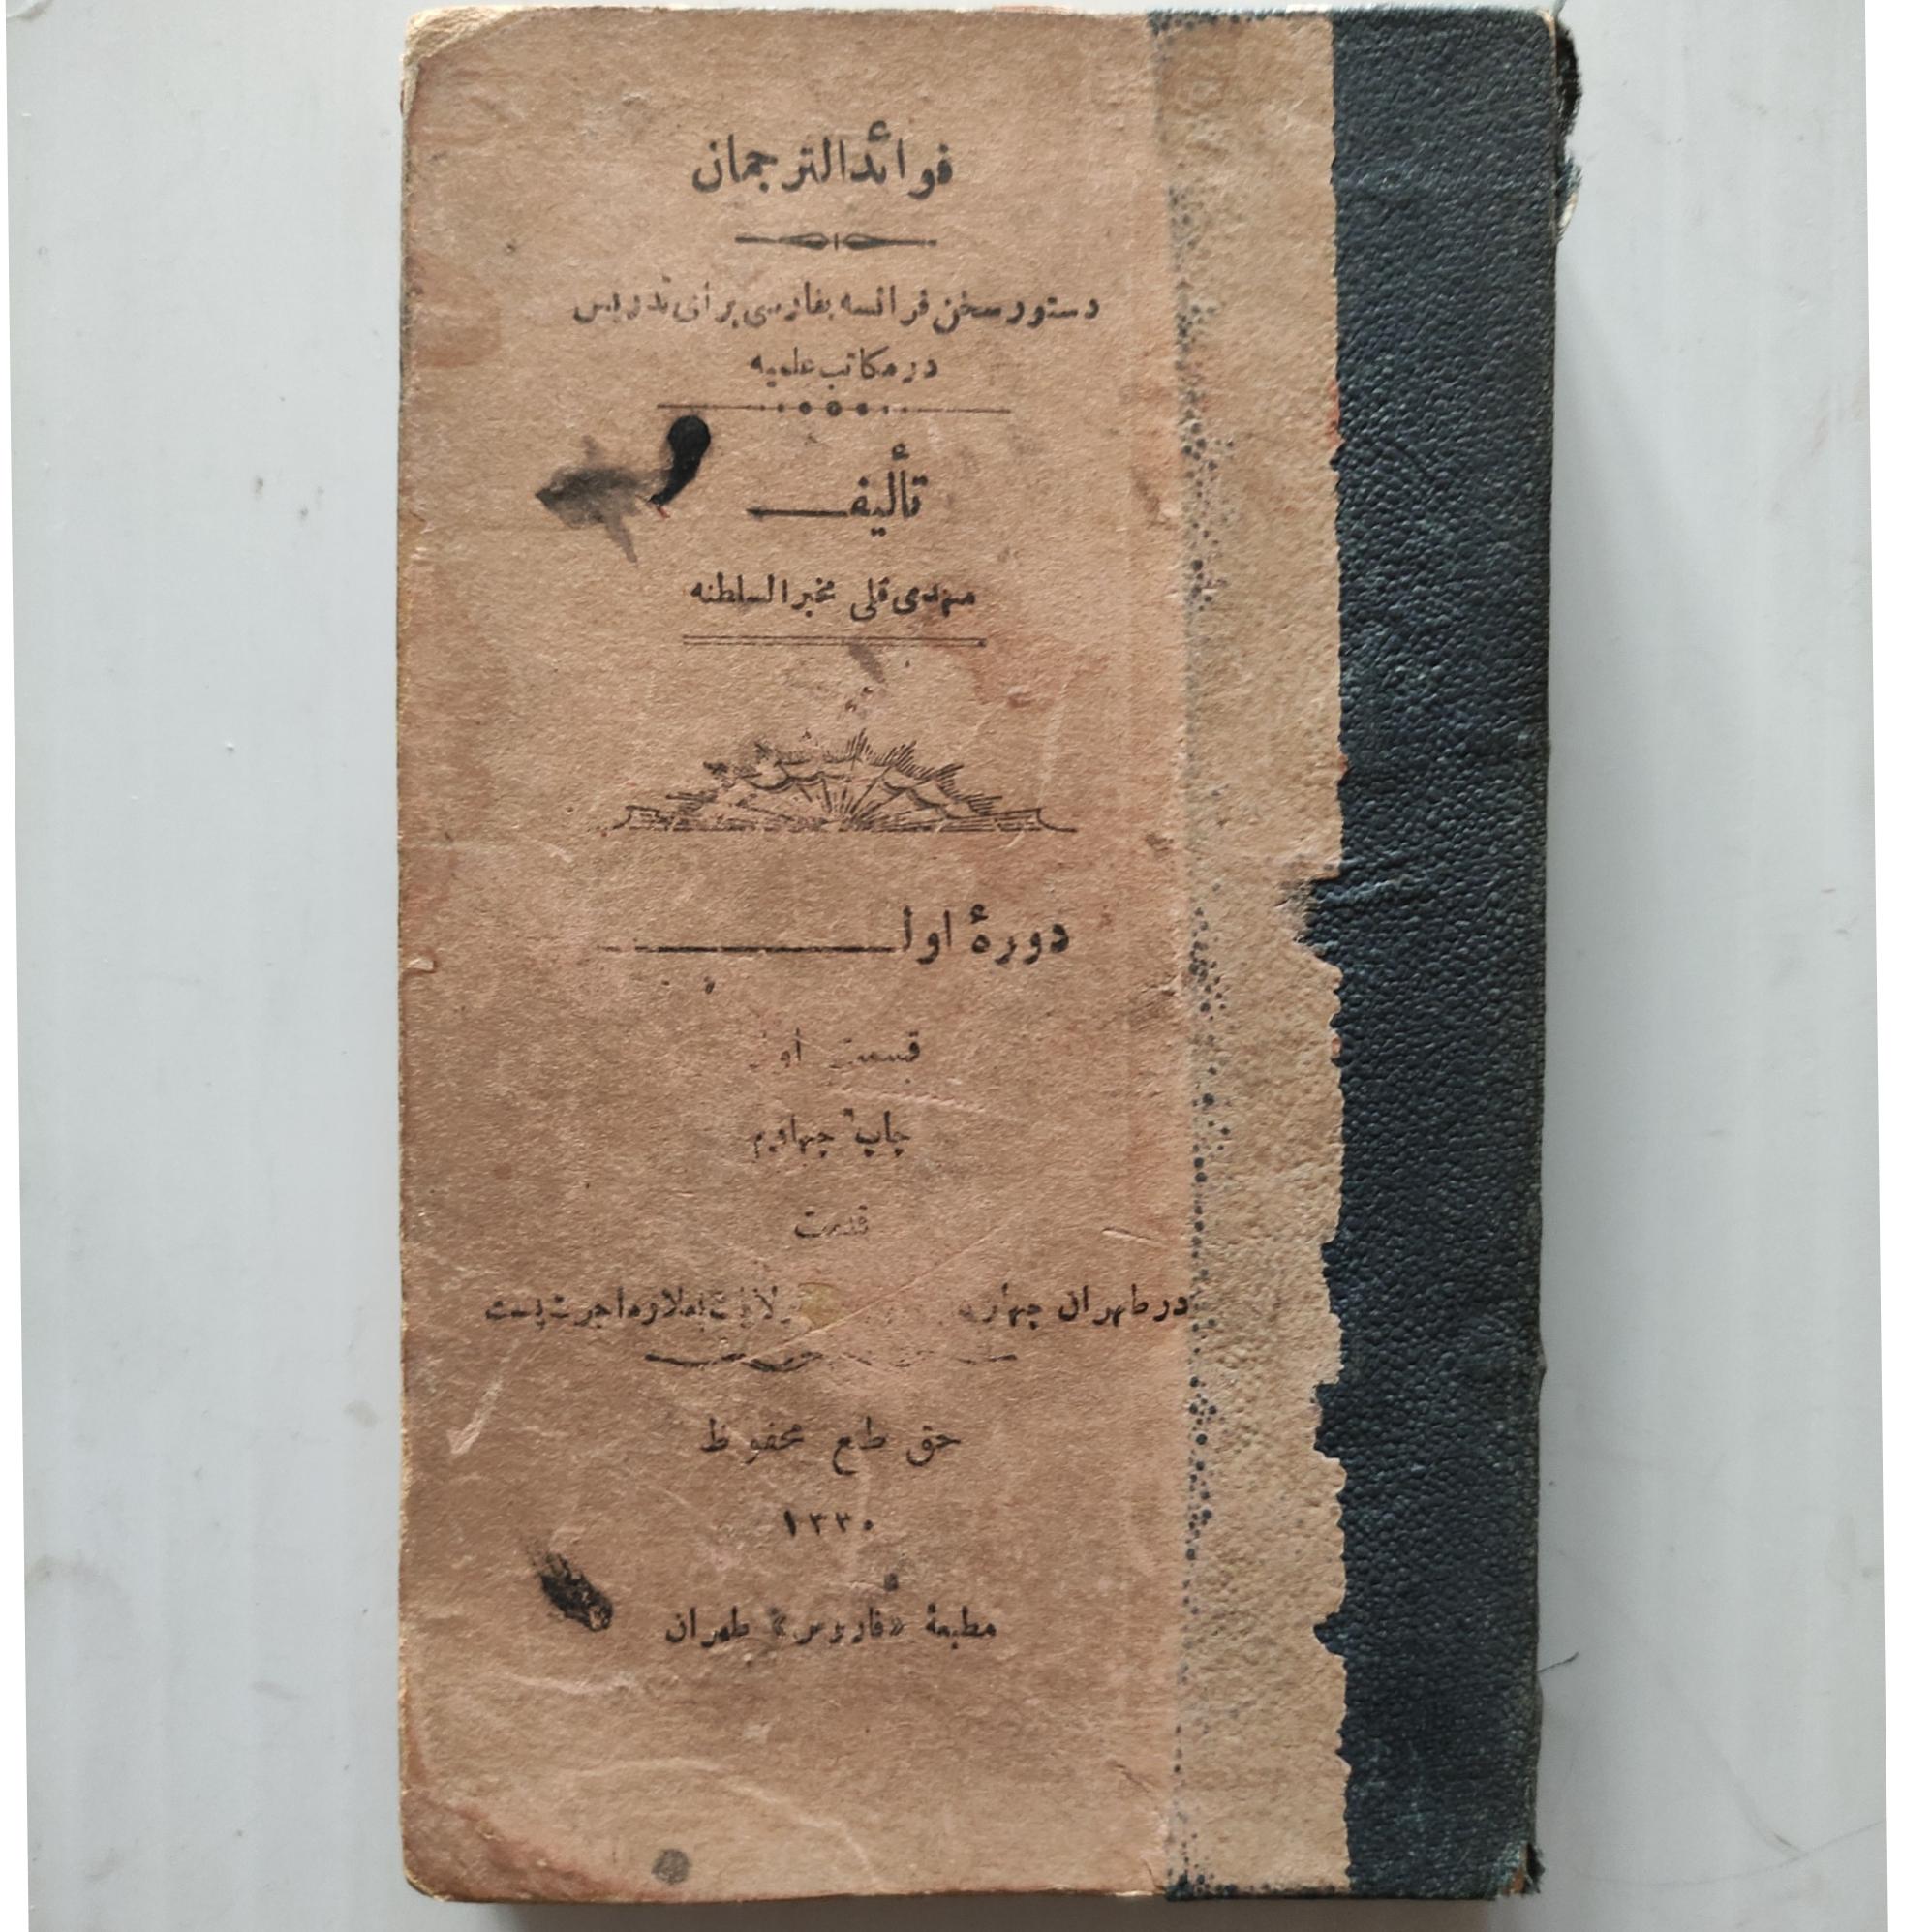 فوائدالترجمان
دستور سخن فرانسه بفارسی برای تدریس
در مکاتب علمیه
تألیف
مهدی قلی مخبرالسلطنه
دورهٔ اول
قسمت اول
چاپ چهارم
قیمت
در طهران چهار ولایات بعلاوه اجرت پست
حق طبع محفوظ
۱۳۳۰
مطبعهٔ «فاروس» طهران